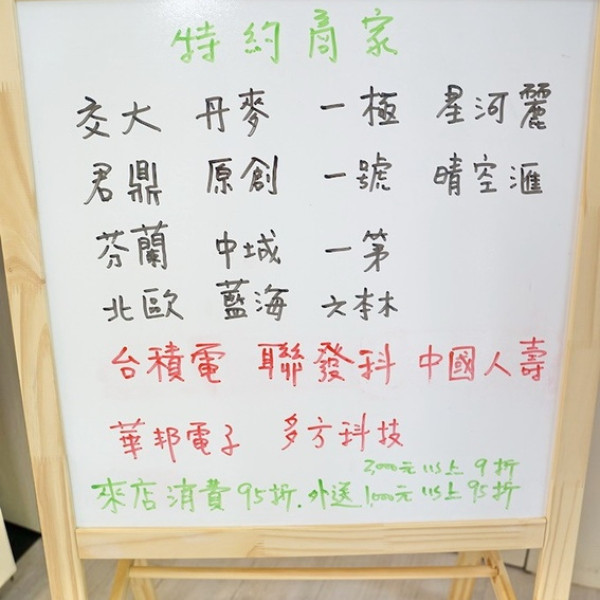 特約商家
交大 丹麥 一極 星河麗
君鼎 原創 一號 晴空滙
芬蘭 中城 一第
北歐 藍海 六本林
台積電 聯發科 中國人壽
華邦電子 多方科技
3000元以上9折
來店消費95折.外送1000元以上95折